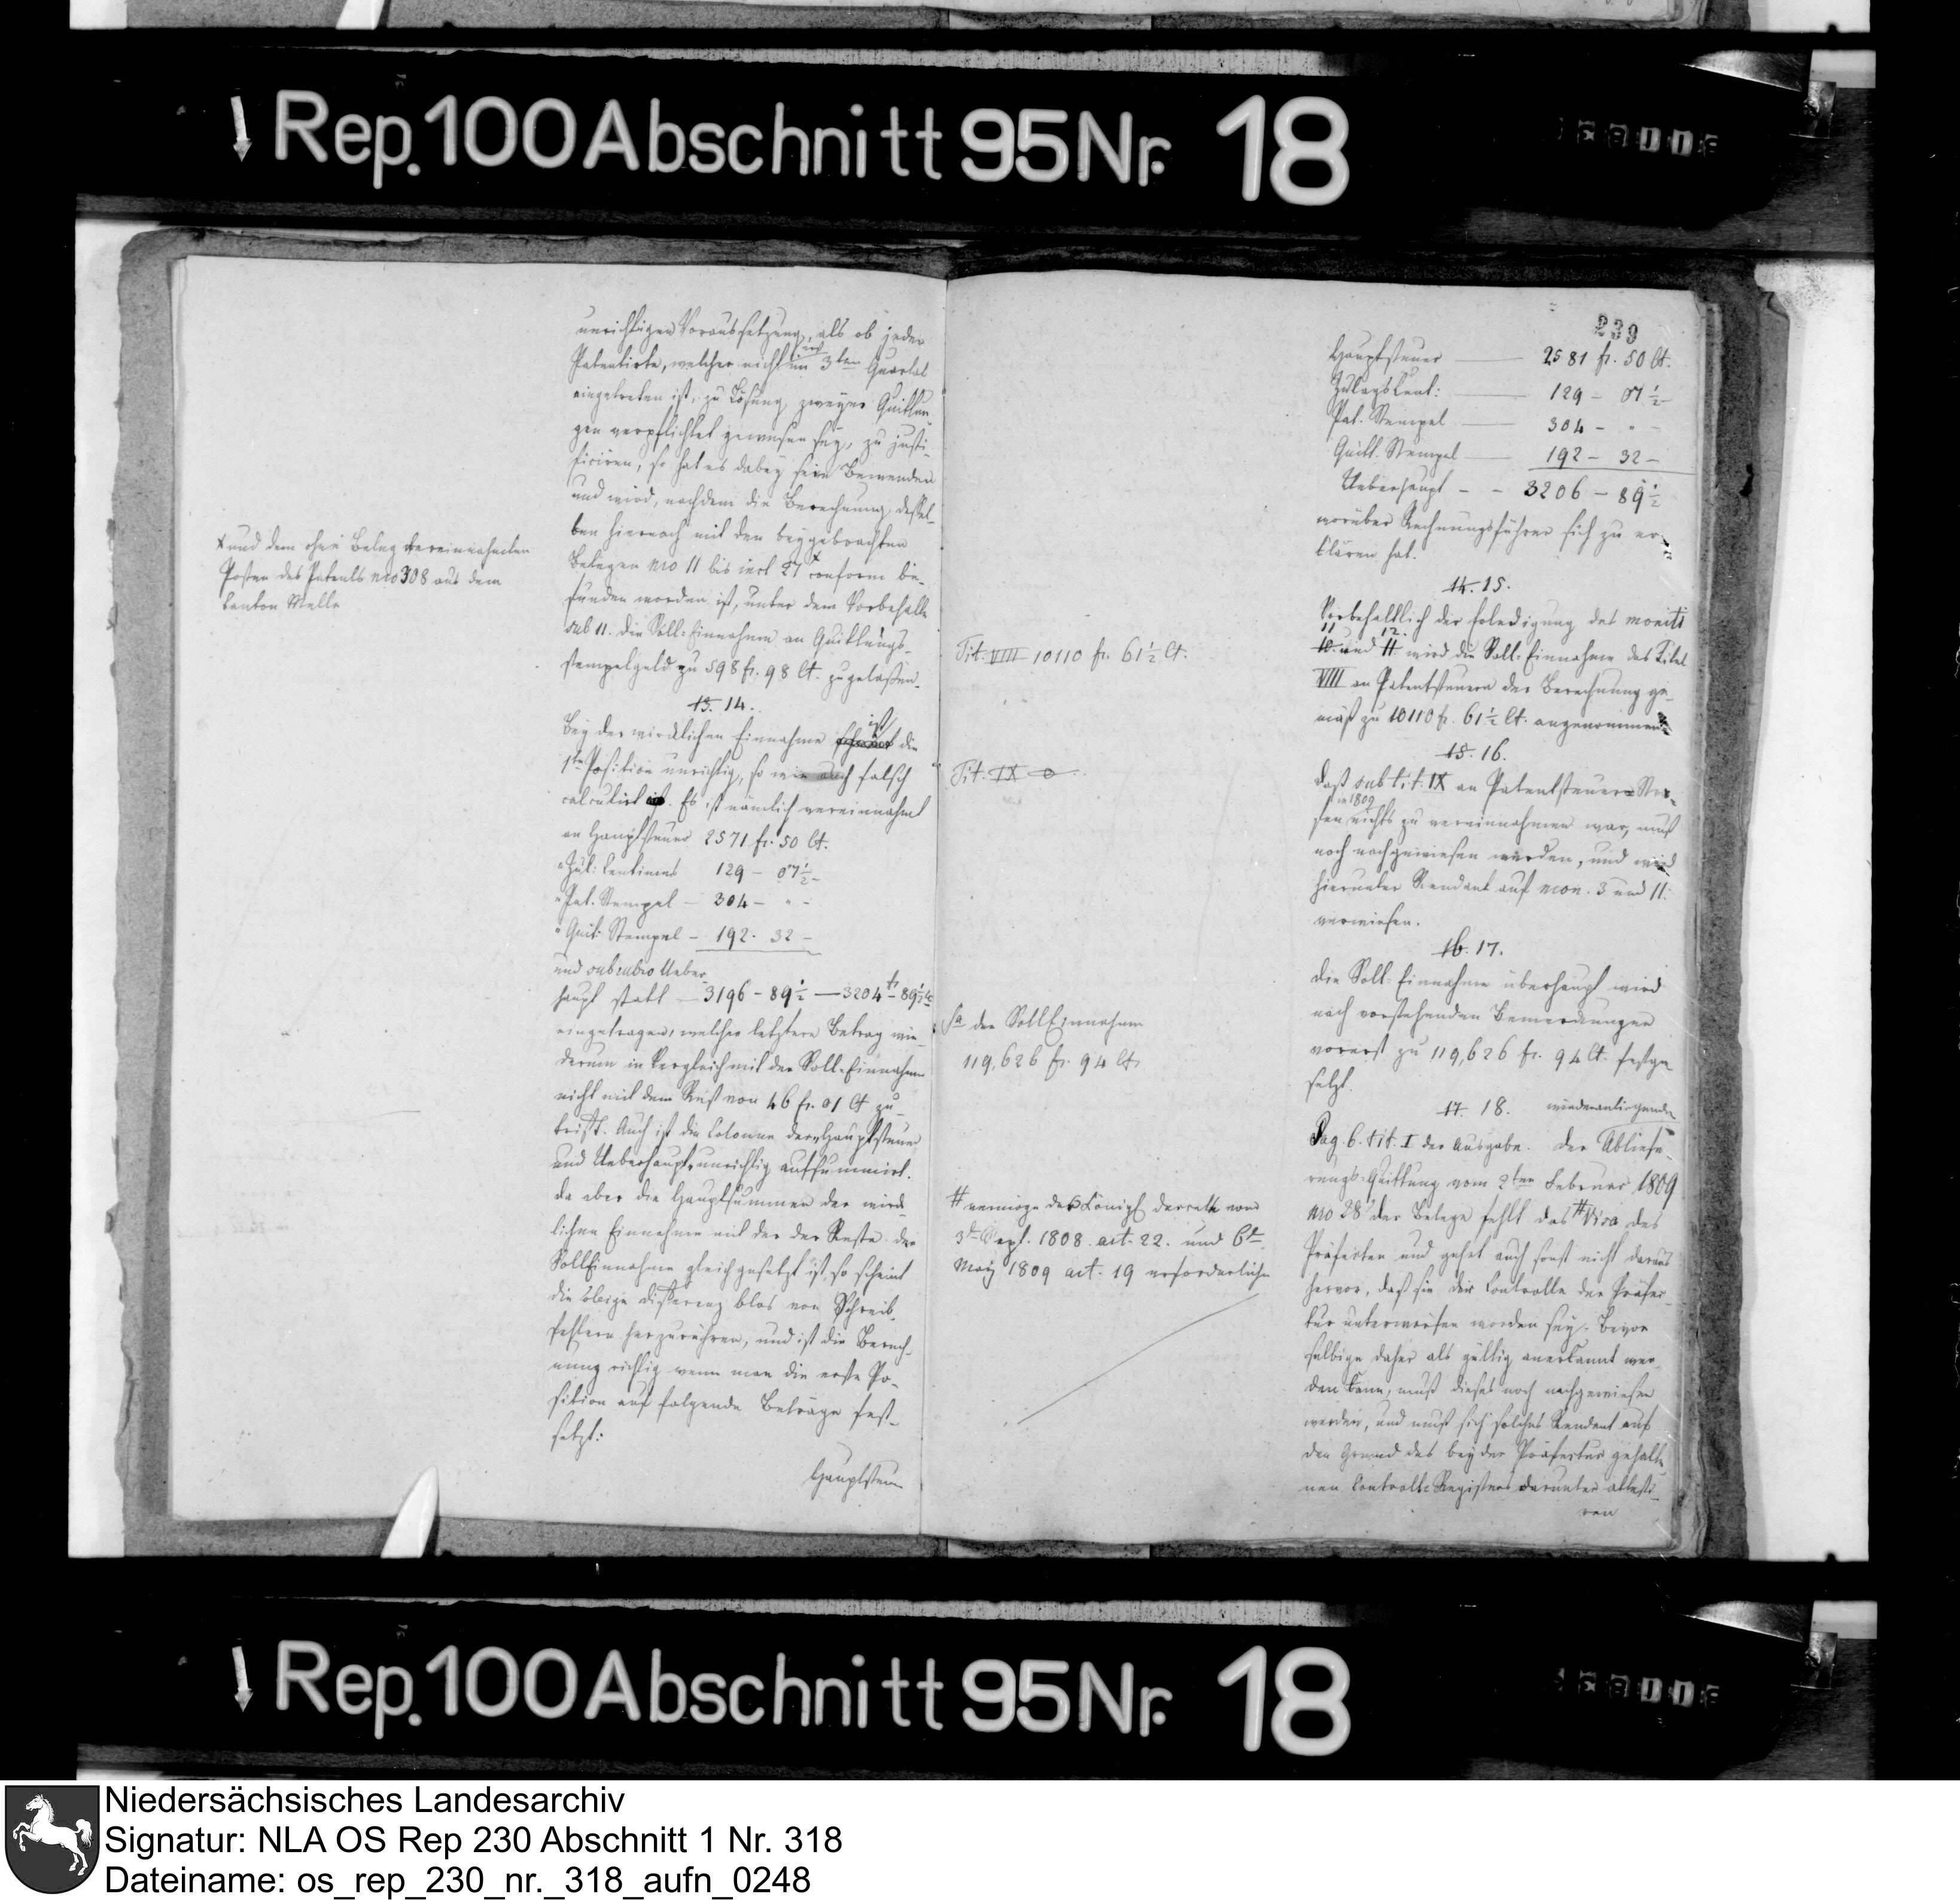 Rep. 100 Abschnitt 95 Nr. 18
unrichtigen Voraussetzung, als ob jeder
Patentirte, welcher nicht erst im 3ten Quartal
eingetreten ist, zu Lösung zweyer Quittun-
gen verpflichtet gewesen sey, zu justi-
ficiren, so hat es dabey sein Bewenden
und wird, nachdem die Berechnung dessel-
ben hiernach mit den beygebrachten
Belegen nro 11 bis incl 27 x conform be-
funden worden ist, unter dem Vorbehalte
sub 11. die Soll-Einnahme an Quittungs-
stempelgeld zu 598 fr. 98 Ct. zugelassen.
x und dem ohne Beleg vereinnahmten
Posten des Patents nro 308 aus dem
Canton Melle
13. 14.
Bey der wirklichen Einnahme ist die
1te Position unrichtig, so wie auch falsch
calculirt ist. Es ist nämlich vereinnahmt
an Hauptsteuer 2571 fr. 50 Ct.
" Zul: Centimes 129 – 07½ –
" Pat. Stempel – 304 – " –
" Quit: Stempel – 192 – 32 –
und sub rubro Ueber-
haupt statt – 3196 – 89½ — 3204 fr – 89½ Ct
eingetragen, welcher letztere Betrag wie-
derum in Vergleich mit der Soll-Einnahme
nicht mit dem Rest von 46 fr. 01 Ct zu-
trifft. Auch ist die Colonne der Hauptsteuer
und Ueberhaupt unrichtig aufsummirt.
da aber die Hauptsummen der wirk-
lichen Einnahme mit der der Reste der
Solleinnahme gleichgesetzt ist, so scheint
die obige Differenz blos von Schreib-
fehlern herzurühren, und ist die Berech-
nung richtig wenn man die erste Po-
sition auf folgende Beträge fest-
setzt:
Hauptsteuer
239
Hauptsteuer — 2581 fr. 50 Ct.
Zulags Cent: — 129 – 07½ –
Pat. Stempel — 304 – " –
Quitt. Stempel — 192 – 32 –
Ueberhaupt – – 3206 – 89½
worüber Rechnungsführer sich zu er-
klären hat.
14. 15.
Tit. VIII 10110 fr. 61½ Ct.
Vorbehaltlich der Erledigung des moniti
10. 11 und 11. 12. wird die Soll-Einnahme des Titel
VIII an Patentsteuern der Berechnung ge-
mäß zu 10110 fr. 61½ Ct. angenommen
15. 16.
Tit. IX – 0 –
daß sub tit. IX an Patentsteuer
in 1809 nichts zu vereinnahmen war, muß
noch nachgewiesen werden, und wird
hierunter Rendant auf mon. 3 und 11.
verwiesen.
16. 17.
Sa der Soll Einnahme
119,626 fr. 94 Ct.
Die Soll-Einnahme überhaupt wird
nach vorstehenden Bemerkungen
vorerst zu 119,626 fr. 94 Ct. festge-
setzt.
17. 18. wiederanliegende
Pag. 6. tit. I der Ausgabe. Der Abliefe-
rungs-Quittung vom 2ten Februar 1809
nro 28 der Belege fehlt das # Visa des
Präfecten und gehet auch sonst nicht daraus
hervor, daß sie der Controlle der Präfec-
tur unterworfen worden sey. Bevor
selbige daher als gültig anerkannt wer-
den kann, muß dieses noch nachgewiesen
werden, und muß sich solches Rendant auf
den Grund des bey der Präfectur gehalte-
nen Controlle-Registers darunter attesti-
ren
# vermöge des Königl. Decrets vom
3t Sept. 1808. art. 22. und 6t
May 1809 art. 19 erforderliche
Rep. 100 Abschnitt 95 Nr. 18
Niedersächsisches Landesarchiv
Signatur: NLA OS Rep 230 Abschnitt 1 Nr. 318
Dateiname: os_rep_230_nr._318_aufn_0248